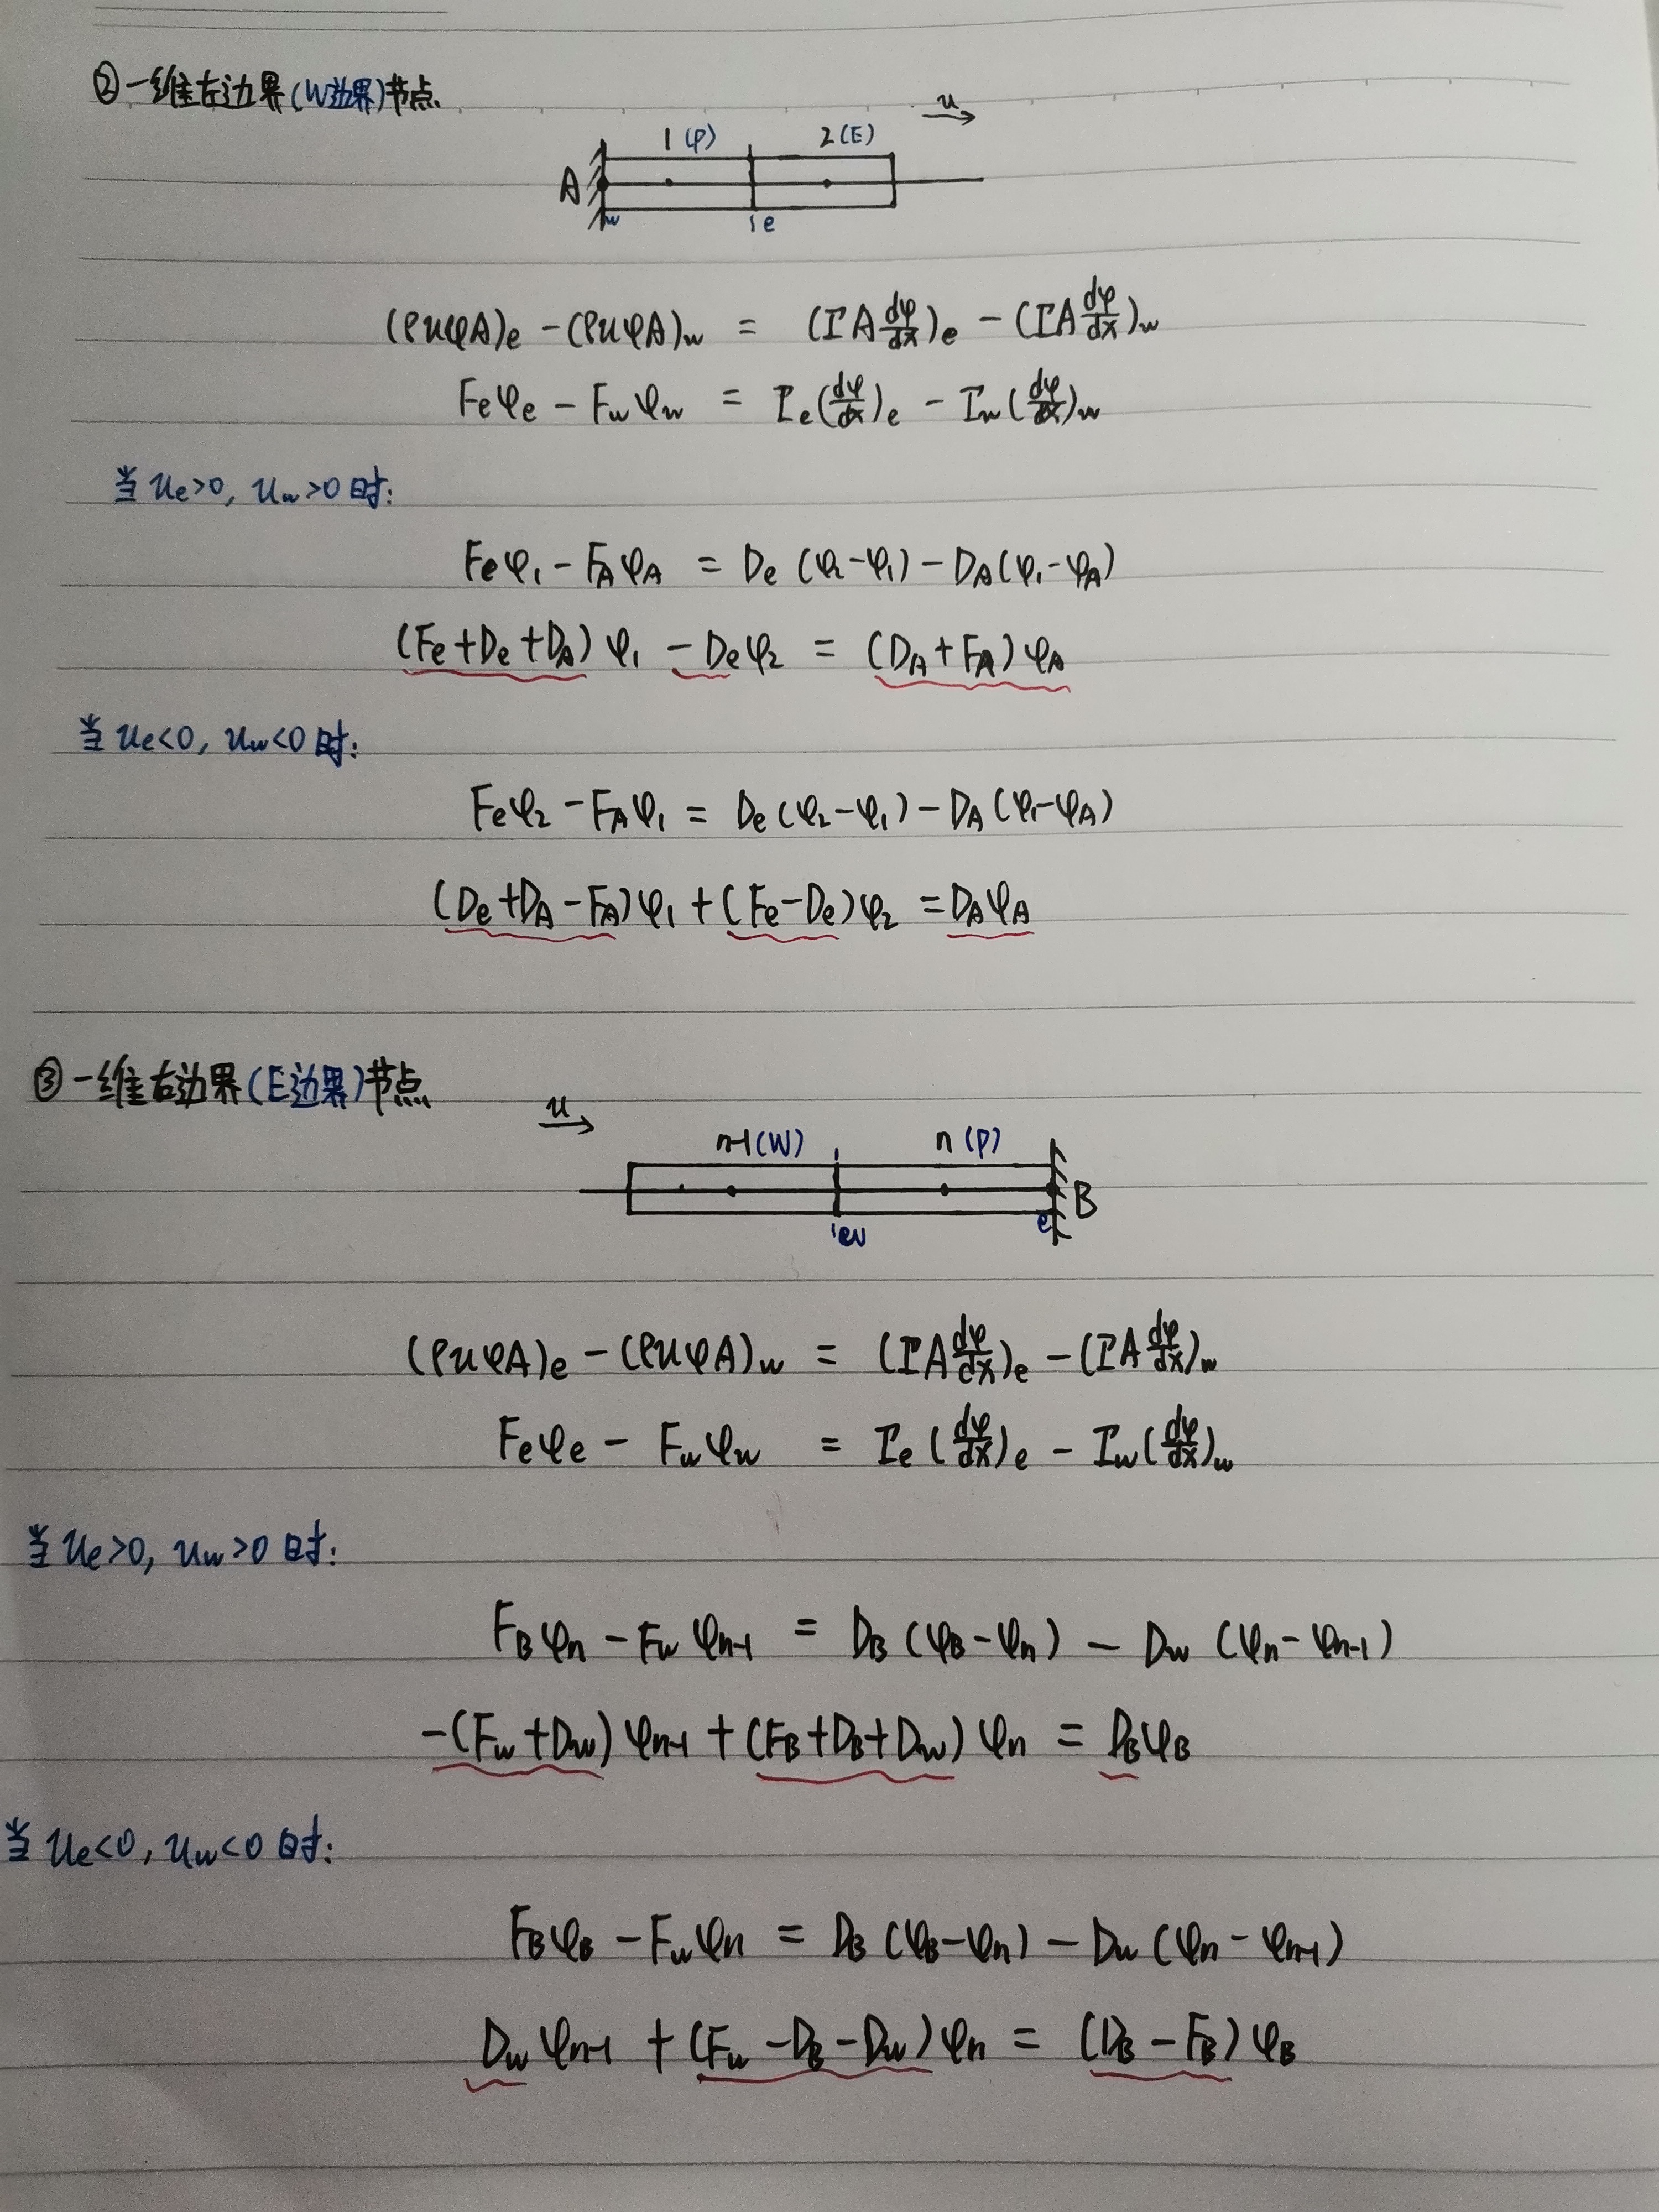 ②一维左边界(W边界)节点
u
1(P) 2(E)
A
w e
(ρuφA)e - (ρuφA)w = (ΓA dφ/dx)e - (ΓA dφ/dx)w
Feφe - Fwφw = Γe(dφ/dx)e - Γw(dφ/dx)w
当 ue>0, uw>0 时:
Feφ1 - FAφA = De(φ2-φ1) - DA(φ1-φA)
(Fe+De+DA)φ1 - Deφ2 = (DA+FA)φA
当 ue<0, uw<0 时:
Feφ2 - FAφ1 = De(φ2-φ1) - DA(φ1-φA)
(De+DA-FA)φ1 + (Fe-De)φ2 = DAφA
③一维右边界(E边界)节点
u
n-1(W) n(P)
B
w e
(ρuφA)e - (ρuφA)w = (ΓA dφ/dx)e - (ΓA dφ/dx)w
Feφe - Fwφw = Γe(dφ/dx)e - Γw(dφ/dx)w
当 ue>0, uw>0 时:
FBφn - Fwφn-1 = DB(φB-φn) - Dw(φn-φn-1)
-(Fw+Dw)φn-1 + (FB+DB+Dw)φn = DBφB
当 ue<0, uw<0 时:
FBφB - Fwφn = DB(φB-φn) - Dw(φn-φn-1)
Dwφn-1 + (Fw-DB-Dw)φn = (DB-FB)φB